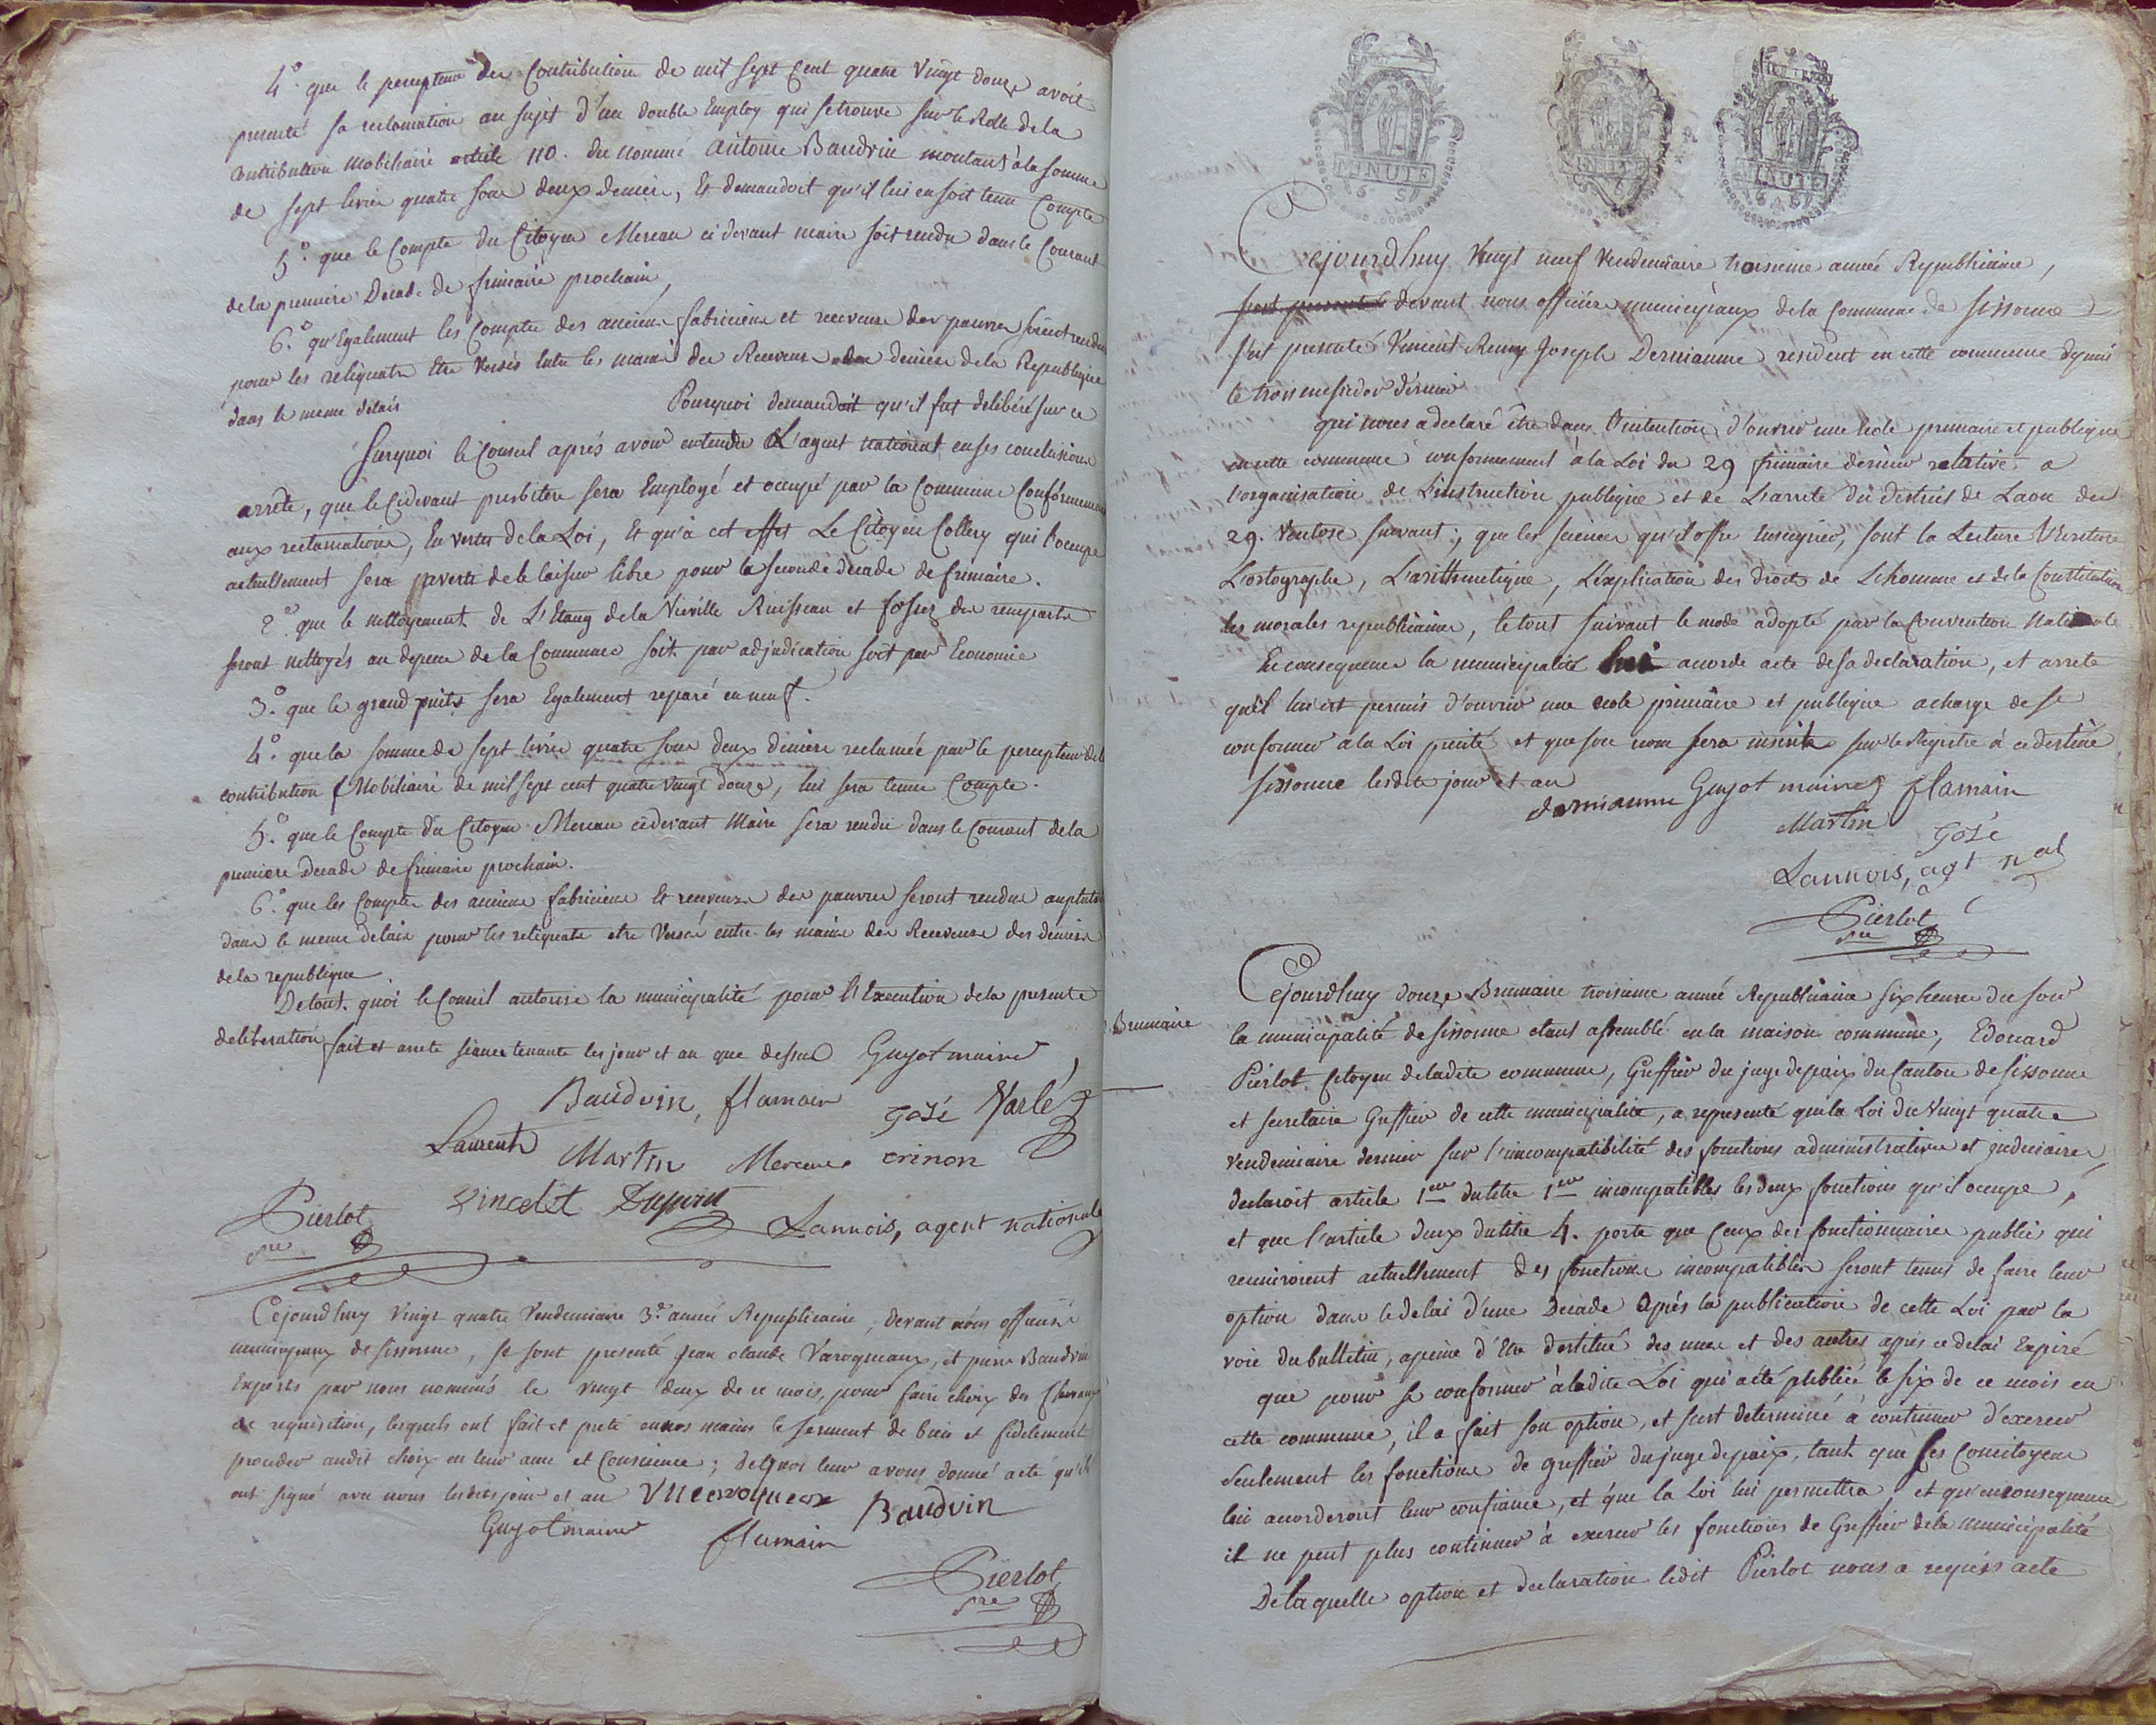 4.° que le percepteur des Contributions de mil sept Cent quatre Vingt douze avoit
presenté sa reclamation au sujet d'un double Employ qui se trouve sur le Rolle de la
Contribution mobiliaire article 110. du nommé Antoine Baudvin montant à la somme
de sept livres quatre sous deux deniers, Et demandoit qu'il lui en soit tenu Compte
5.° que le Compte du Citoyen Mereau ci devant maire soit rendu dans le Courant
de la premiere Decade de frimaire prochain,
6.° qu'Egalement les Comptes des anciens fabriciens et receveurs des pauvres soient rendus
pour les reliquats Etre Versés entre les mains des Receveurs des deniers de la Republique
dans le meme delais
Pourquoi demandoit qu'il fut deliberé sur ce
Surquoi le Conseil aprés avoir entendu L'agent national en ses conclusions
arrête, que le Cidevant presbitere sera Employé et occupé par la Commune Conformement
aux reclamations, En vertu de la Loi, Et qu'à cet effet Le Citoyen Collery qui l'occupe
actuellement sera averti de le laisser libre pour la seconde decade de frimaire.
2.° que le nettoyement de L'Etang de la Vieville Ruisseau et fossez des remparts
seront nettoyés au depens de la Commune soit par adjudication soit par Economie
3.° que le grand puits sera Egalement reparé en neuf.
4.° que la somme de sept livres quatre sous deux deniers reclamée par le percepteur de la
contribution Mobiliaire de mil sept cent quatre vingt douze, lui sera tenu Compte.
5.° que le Compte du Citoyen Mereau cidevant Maire sera rendu dans le Courant de la
premiere Decade de frimaire prochain.
6.° que les Comptes des anciens fabriciens Et receveurs des pauvres seront rendus au plutot
dans le meme delais pour les reliquats etre Versés entre les mains des Receveurs des deniers
de la republique
De tout. quoi le Conseil autorise la municipalité pour l'Execution de la presente
deliberation, fait et arrete séance tenante les jour et an que dessus Guyot maire
Baudvin, flamain José Varlé
Laurent Martin Mereau crinon
Pierlot Vincelet Dupuit Lannois, agent national
sre
Cejourdhuy Vingt quatre Vendemiaire 3.e année Republicaine, devant nous officiers
municipaux de Sissonne, se sont presenté Jean claude Varoqueaux, et pierre Baudvin
Experts par nous nommés le vingt deux de ce mois, pour faire choix des Chevaux
de requisition, lesquels ont fait et preté en nos mains le serment de bien et fidelement
proceder audit choix en leur ame et Conscience; desquoi leur avons donné acte qu'ils
ont signé avec nous lesdits jour et an Varoqueaux Baudvin
Guyot maire flamain
Pierlot
sre
MINUTE MINUTE MINUTE
Cejourdhuy Vingt neuf Vendemiaire troisieme année Republicaine,
devant nous officiers municipaux de la Commune de Sissonne
s'est presenté Vincent Remy Joseph Dermianne resident en cette commune depuis
le trois messidor dernier
qui nous a declaré être dans l'intention d'ouvrir une Ecole primaire et publique
en cette commune conformement à la Loi du 29 frimaire dernier relative a
l'organisation de L'instruction publique et de L'arreté du district de Laon du
29. Ventose suivant; que les sciences qu'il offre Enseigner, sont la Lecture L'Ecriture
L'ortographe, L'arithmetique, L'Explication des droits de L'homme et de la Constitution
les morales republicaines, le tout suivant le mode adopté par la Convention Nationale
En consequence la municipalité lui accorde acte de sa declaration, et arrete
qu'il lui est permis d'ouvrir une ecole primaire et publique a charge de se
conformer à la Loi precité et que son nom sera inscrit sur le Registre à ce destiné
Sissonne lesdits jour et an
dermianne Guyot maire flamain
Martin José
Lannois, agt nal
Pierlot
sre
Brumaire
Cejourdhuy douze Brumaire troisieme année Republicaine six heures du soir
la municipalité de Sissonne etant assemblé en la maison commune, Edouard
Pierlot Citoyen de ladite commune, Greffier du juge de paix du Canton de Sissonne
et secretaire Greffier de cette municipalité, a representé que la Loi du Vingt quatre
Vendemiaire dernier sur l'incompatibilité des fonctions administratives et judiciaires,
declaroit article 1er du titre 1er incompatibles les deux fonctions qu'il occupe,
et que l'article deux du titre 4. porte que Ceux des fonctionnaires publics qui
reuniroient actuellement des fonctions incompatibles seront tenus de faire leur
option dans le delai d'une Decade Après la publication de cette Loi par la
voie du bulletin, a peine d'Etre destitué des unes et des autres après ce delai Expiré
que pour se conformer à ladite Loi qui a été publiée le six de ce mois en
cette commune, il a fait son option, et s'est determiné a continuer d'exercer
seulement les fonctions de greffier du juge de paix, tant que ses Concitoyens
lui accorderont leur confiance, et que la Loi lui permettra, et qu'en consequence
il ne peut plus continuer à exercer les fonctions de Greffier de la municipalité
De laquelle option et declaration ledit Pierlot nous a requis acte